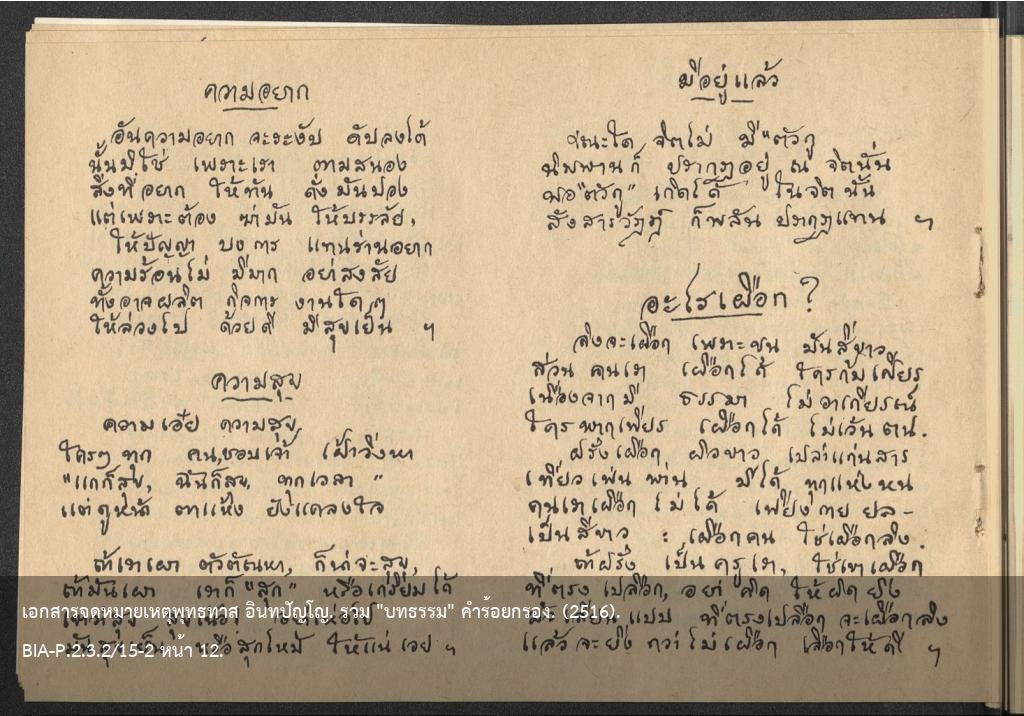 ความอยาก
อันความอยาก จะระงับ ดับลงได้
นั้นมิใช่ เพราะเรา ตามสนอง
สิ่งที่อยาก ให้ทัน ดั่งมันปอง
แต่เพราะต้อง ฆ่ามัน ให้บรรลัย,
ให้ปัญญา บงการ แทนร่านอยาก
ความร้อนไม่ มีมาก อย่าสงสัย
ทั้งอาจผลิต กิจการ งานใดๆ
ให้ล่วงไป ด้วยดี มีสุขเย็น ฯ
ความสุข
ความเอ๋ย ความสุข
ใครๆ ทุก คน,ชอบเจ้า เฝ้าวิ่งหา
"แกก็สุข, ฉันก็สุข, ทุกเวลา"
แต่ดูหน้า ตาแห้ง ยังแคลงใจ
ถ้าเราเผา ตัวตัณหา, ก็น่าจะสุข,
ถ้ามันเผา เราก็ "สุก" หรือเกรียมได้
เขาว่าสุข
หรือสุกไหม้ ให้แน่ เอย ฯ
มีอยู่แล้ว
ขณะใด จิตไม่ มี "ตัวกู
นิพพานก็ ปรากฏอยู่ ณ จิตนั่น
พอ "ตัวกู" เกิดได้ ในจิตนั้น
สังสารวัฏฏ์ ก็พลัน ปรากฏแทน ฯ
อะไรเผือก ?
ลิงจะเผือก เพราะขน มันสีขาว
ส่วน คนเรา เผือกได้ ใครก้มเพียร
เนื่องจากมี ธรรมา ไม่อาเกียรณ์
ใครพากเพียร เผือกได้ ไม่เว้นตน.
ฝรั่งเผือก ผิวขาว เปล่าแก่นสาร
เที่ยวเพ่นพ่าน มีได้ ทุกแห่งหน
คนเราเผือก ไม่ได้ เพียงกายยล–
เป็นสีขาว : เผือกคน ใช่เผือกลิง.
ถ้าฝรั่ง เป็นครูเรา, ใช่เขาเผือก
ที่ตรงเปลือก, อย่าคิด ให้ผิดยิ่ง
แบบ ที่ตรงเปลือก จะเผือกลิง
แล้วจะยิ่ง กว่าไม่เผือก เลือกให้ดี ฯ
เอกสารจดหมายเหตุพุทธทาส อินทปัญโญ. รวม "บทธรรม" คำร้อยกรอง. (2516).
BIA-P.2.3.2/15-2 หน้า 12.